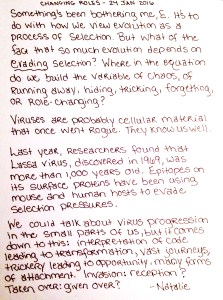 CHANGING ROLES - 24 JAN 2016
Something's been bothering me, E. It's to
do with how we view evolution as a
process of selection. But what of the
fact that so much evolution depends on
evading selection? Where in the equation
do we build the variable of chaos, of
running away, hiding, tricking, forgetting,
or role-changing?
Viruses are probably cellular material
that once went rogue. They know us well.
Last year, researchers found that
Lassa virus, discovered in 1969, was
more than 1,000 years old. Epitopes on
its surface proteins have been using
mouse and human hosts to evade
selection pressures.
We could talk about virus progression
in the small parts of us, but it comes
down to this: interpretation of code
leading to transformation, vast journeys,
trickery leading to opportunity, many forms
of attachment. Invasion: reception?
Taken over: given over?
-Natalie